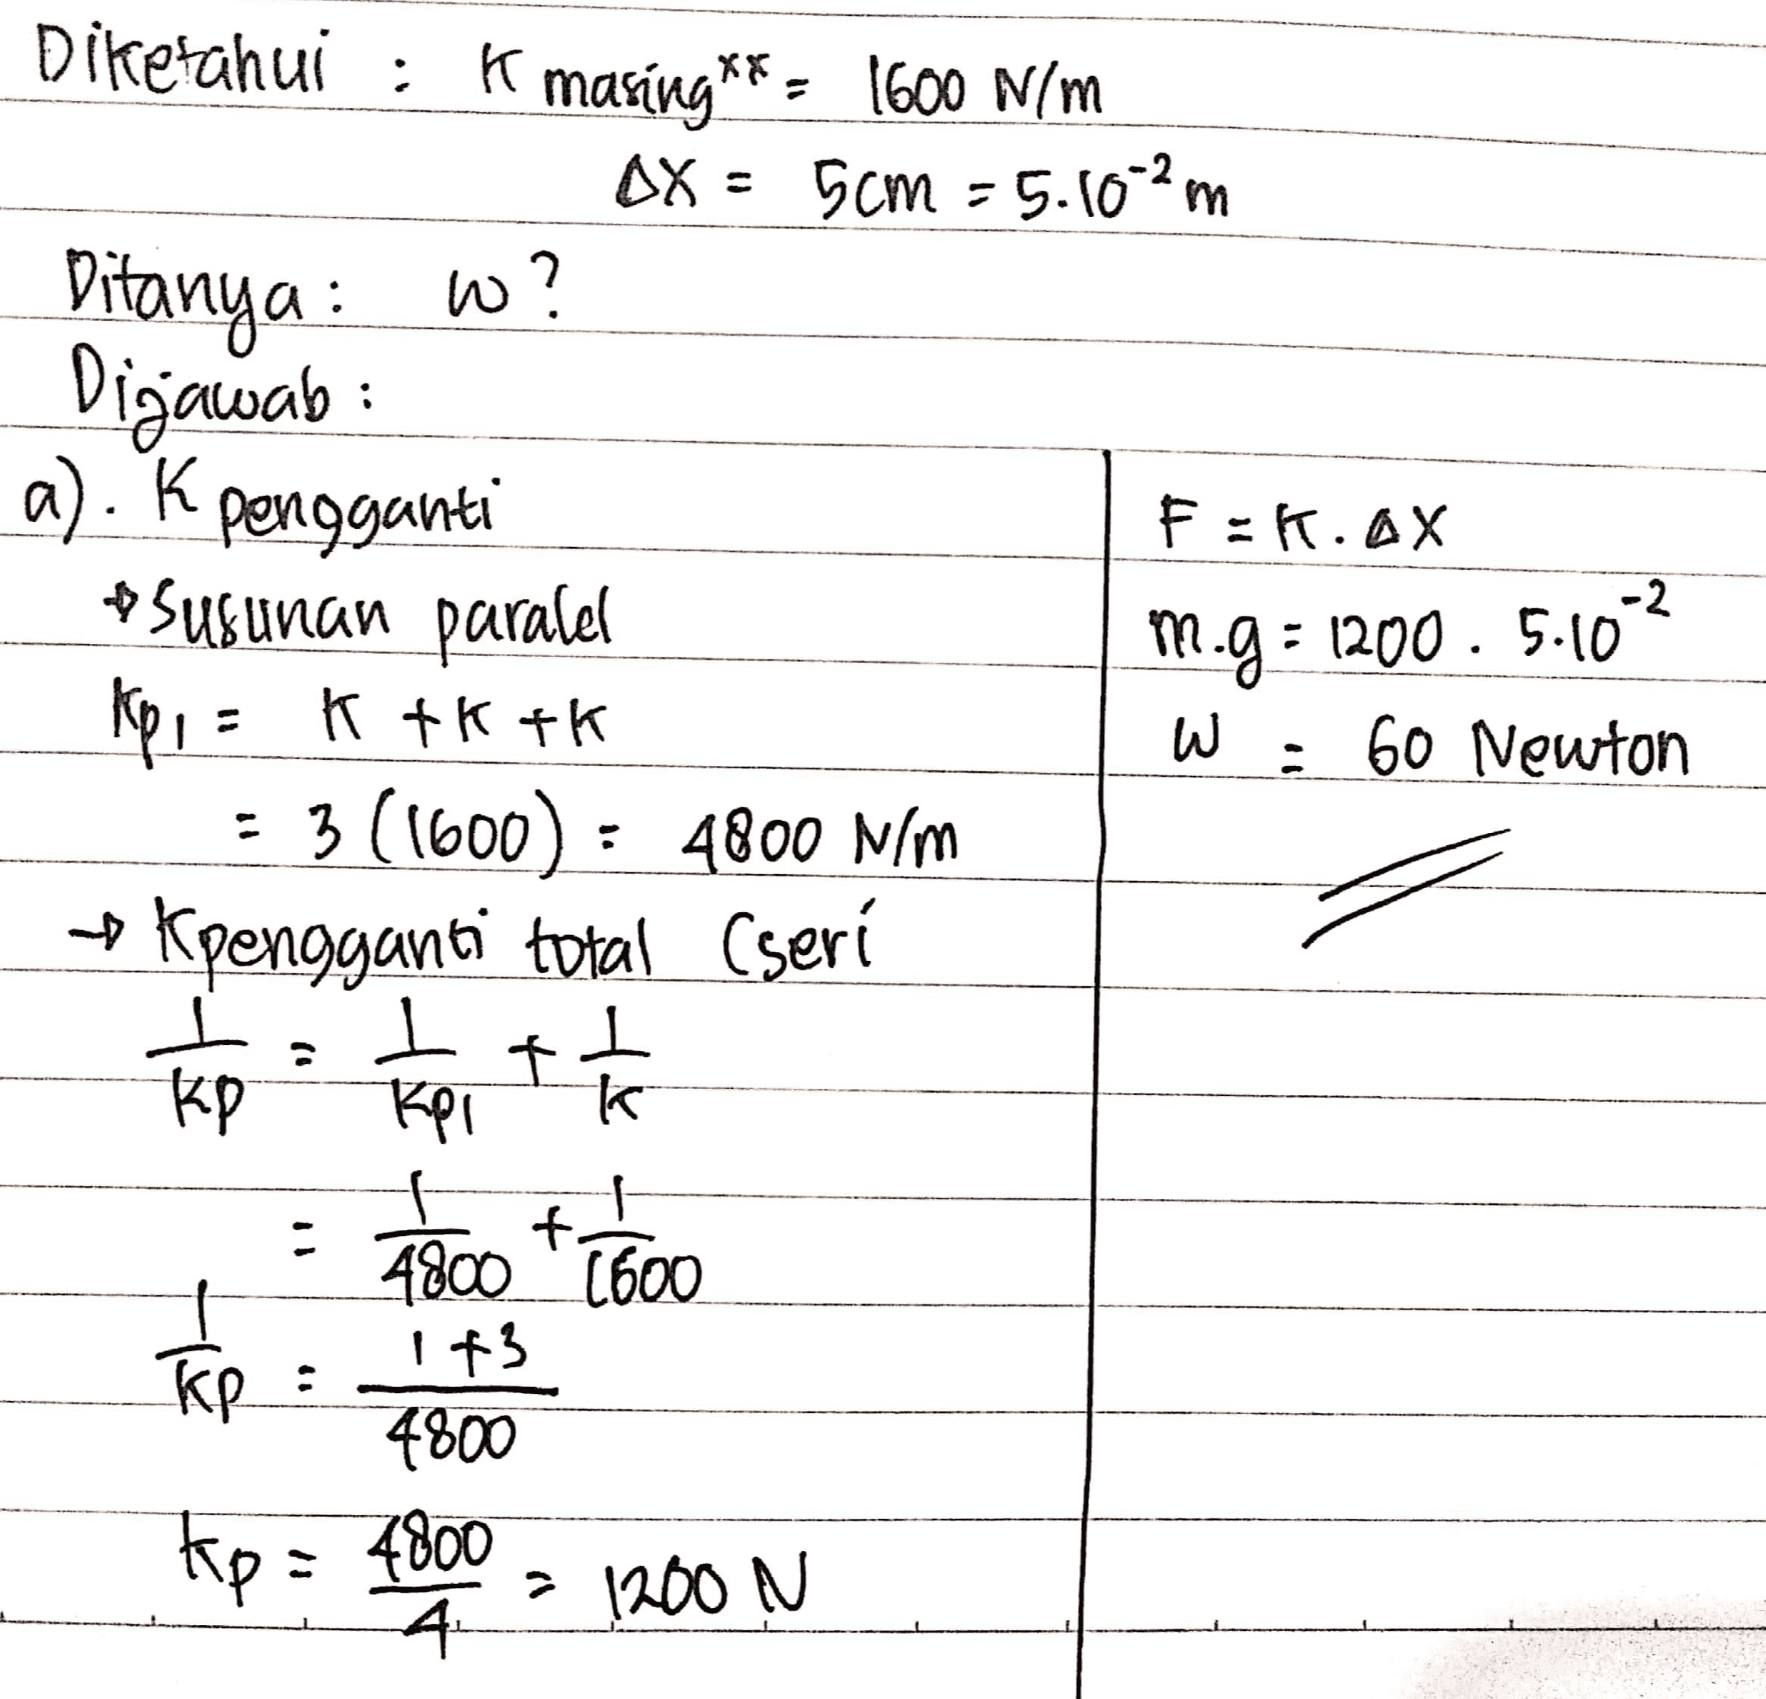 Diketahui : K masing** = 1600 N/m
Δx = 5cm = 5.10⁻² m
Ditanya : w ?
Dijawab :
a). K pengganti
→ Susunan paralel
Kp₁ = K + K + K
= 3 (1600) = 4800 N/m
→ Kpengganti total (seri
1/Kp = 1/Kp₁ + 1/K
= 1/4800 + 1/1600
1/Kp = 1+3/4800
Kp = 4800/4 = 1200 N
F = K . Δx
m.g = 1200 . 5.10⁻²
W = 60 Newton